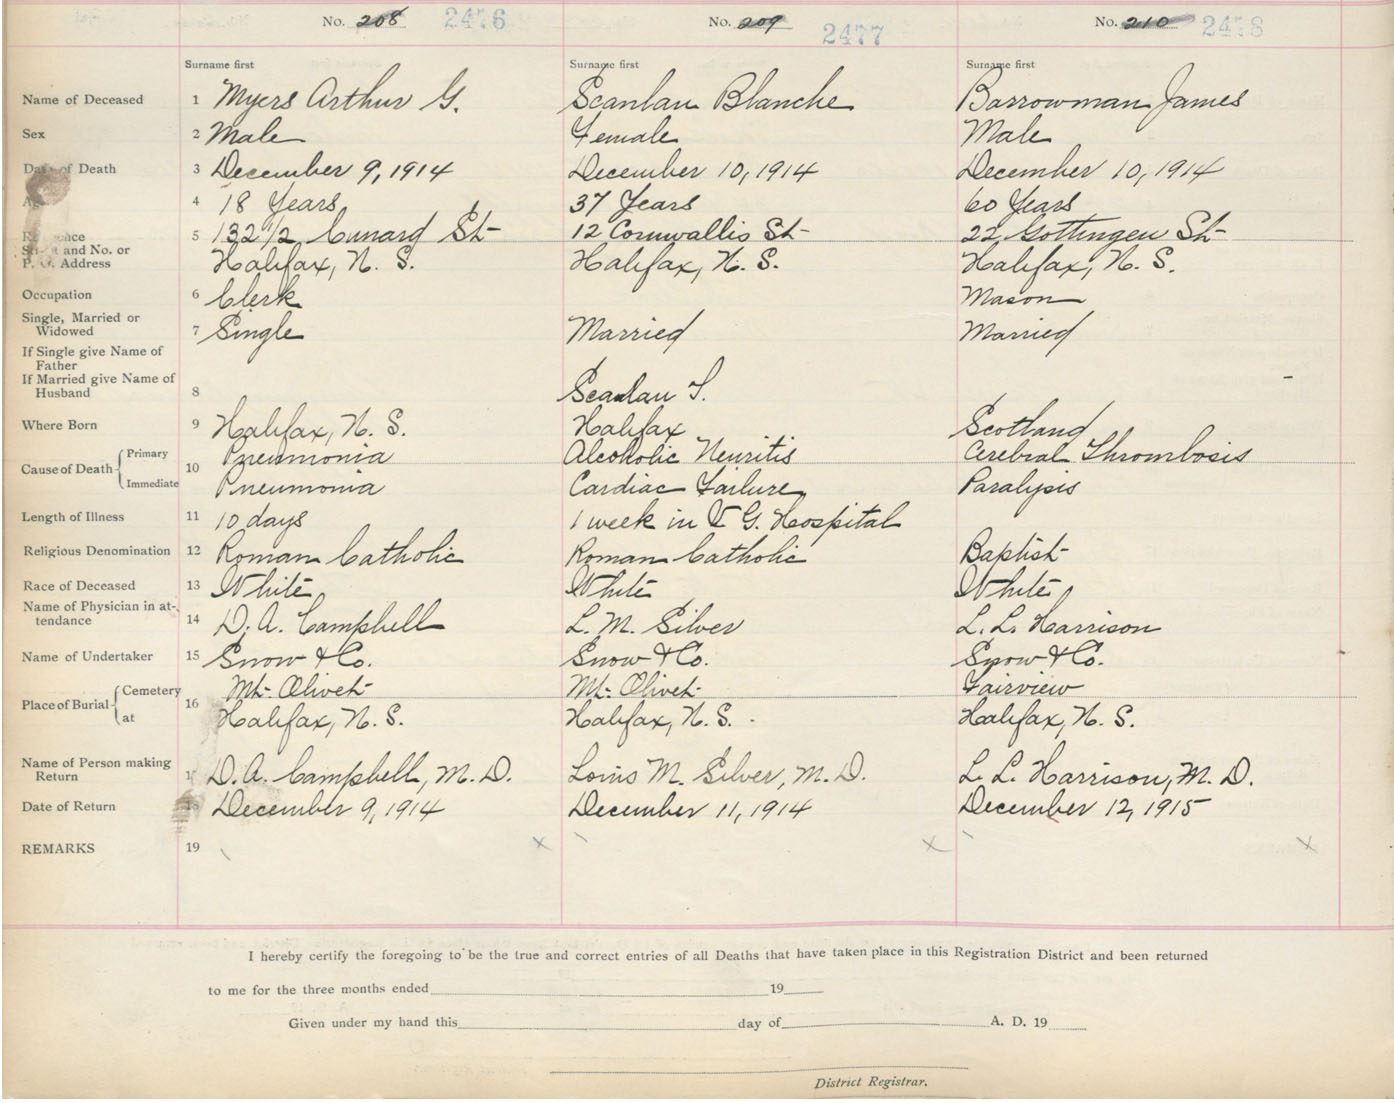 No. 208 2476 No. 209 2477 No. 210 2478
Surname first Surname first Surname first
Name of Deceased 1 Myers Arthur G. Scanlan Blanche Barrowman James
Sex 2 Male Female Male
Date of Death 3 December 9, 1914 December 10, 1914 December 10, 1914
4 18 Years 37 Years 60 Years
5 132 1/2 Cunard St 12 Cornwallis St 22 Gottingen St
and No. or
P. O. Address Halifax, N. S. Halifax, N. S. Halifax, N. S.
Occupation 6 Clerk Mason
Single, Married or
Widowed 7 Single Married Married
If Single give Name of
Father
If Married give Name of
Husband 8 Scanlan T.
Where Born 9 Halifax, N. S. Halifax Scotland
Cause of Death Primary Pneumonia Alcoholic Neuritis Cerebral Thrombosis
10 Immediate Pneumonia Cardiac Failure Paralysis
Length of Illness 11 10 days 1 week in V G. Hospital
Religious Denomination 12 Roman Catholic Roman Catholic Baptist
Race of Deceased 13 White White White
Name of Physician in at-
tendance 14 D. A. Campbell L. M. Silver L. L. Harrison
Name of Undertaker 15 Snow & Co. Snow & Co. Snow & Co.
Place of Burial Cemetery Mt. Olivet Mt. Olivet Fairview
16 at Halifax, N. S. Halifax, N. S. Halifax, N. S.
Name of Person making
Return D. A. Campbell, M. D. Louis M. Silver, M. D. L. L. Harrison, M. D.
Date of Return 18 December 9, 1914 December 11, 1914 December 12, 1915
REMARKS 19 x x x
I hereby certify the foregoing to be the true and correct entries of all Deaths that have taken place in this Registration District and been returned
to me for the three months ended 19
Given under my hand this day of A. D. 19
District Registrar.